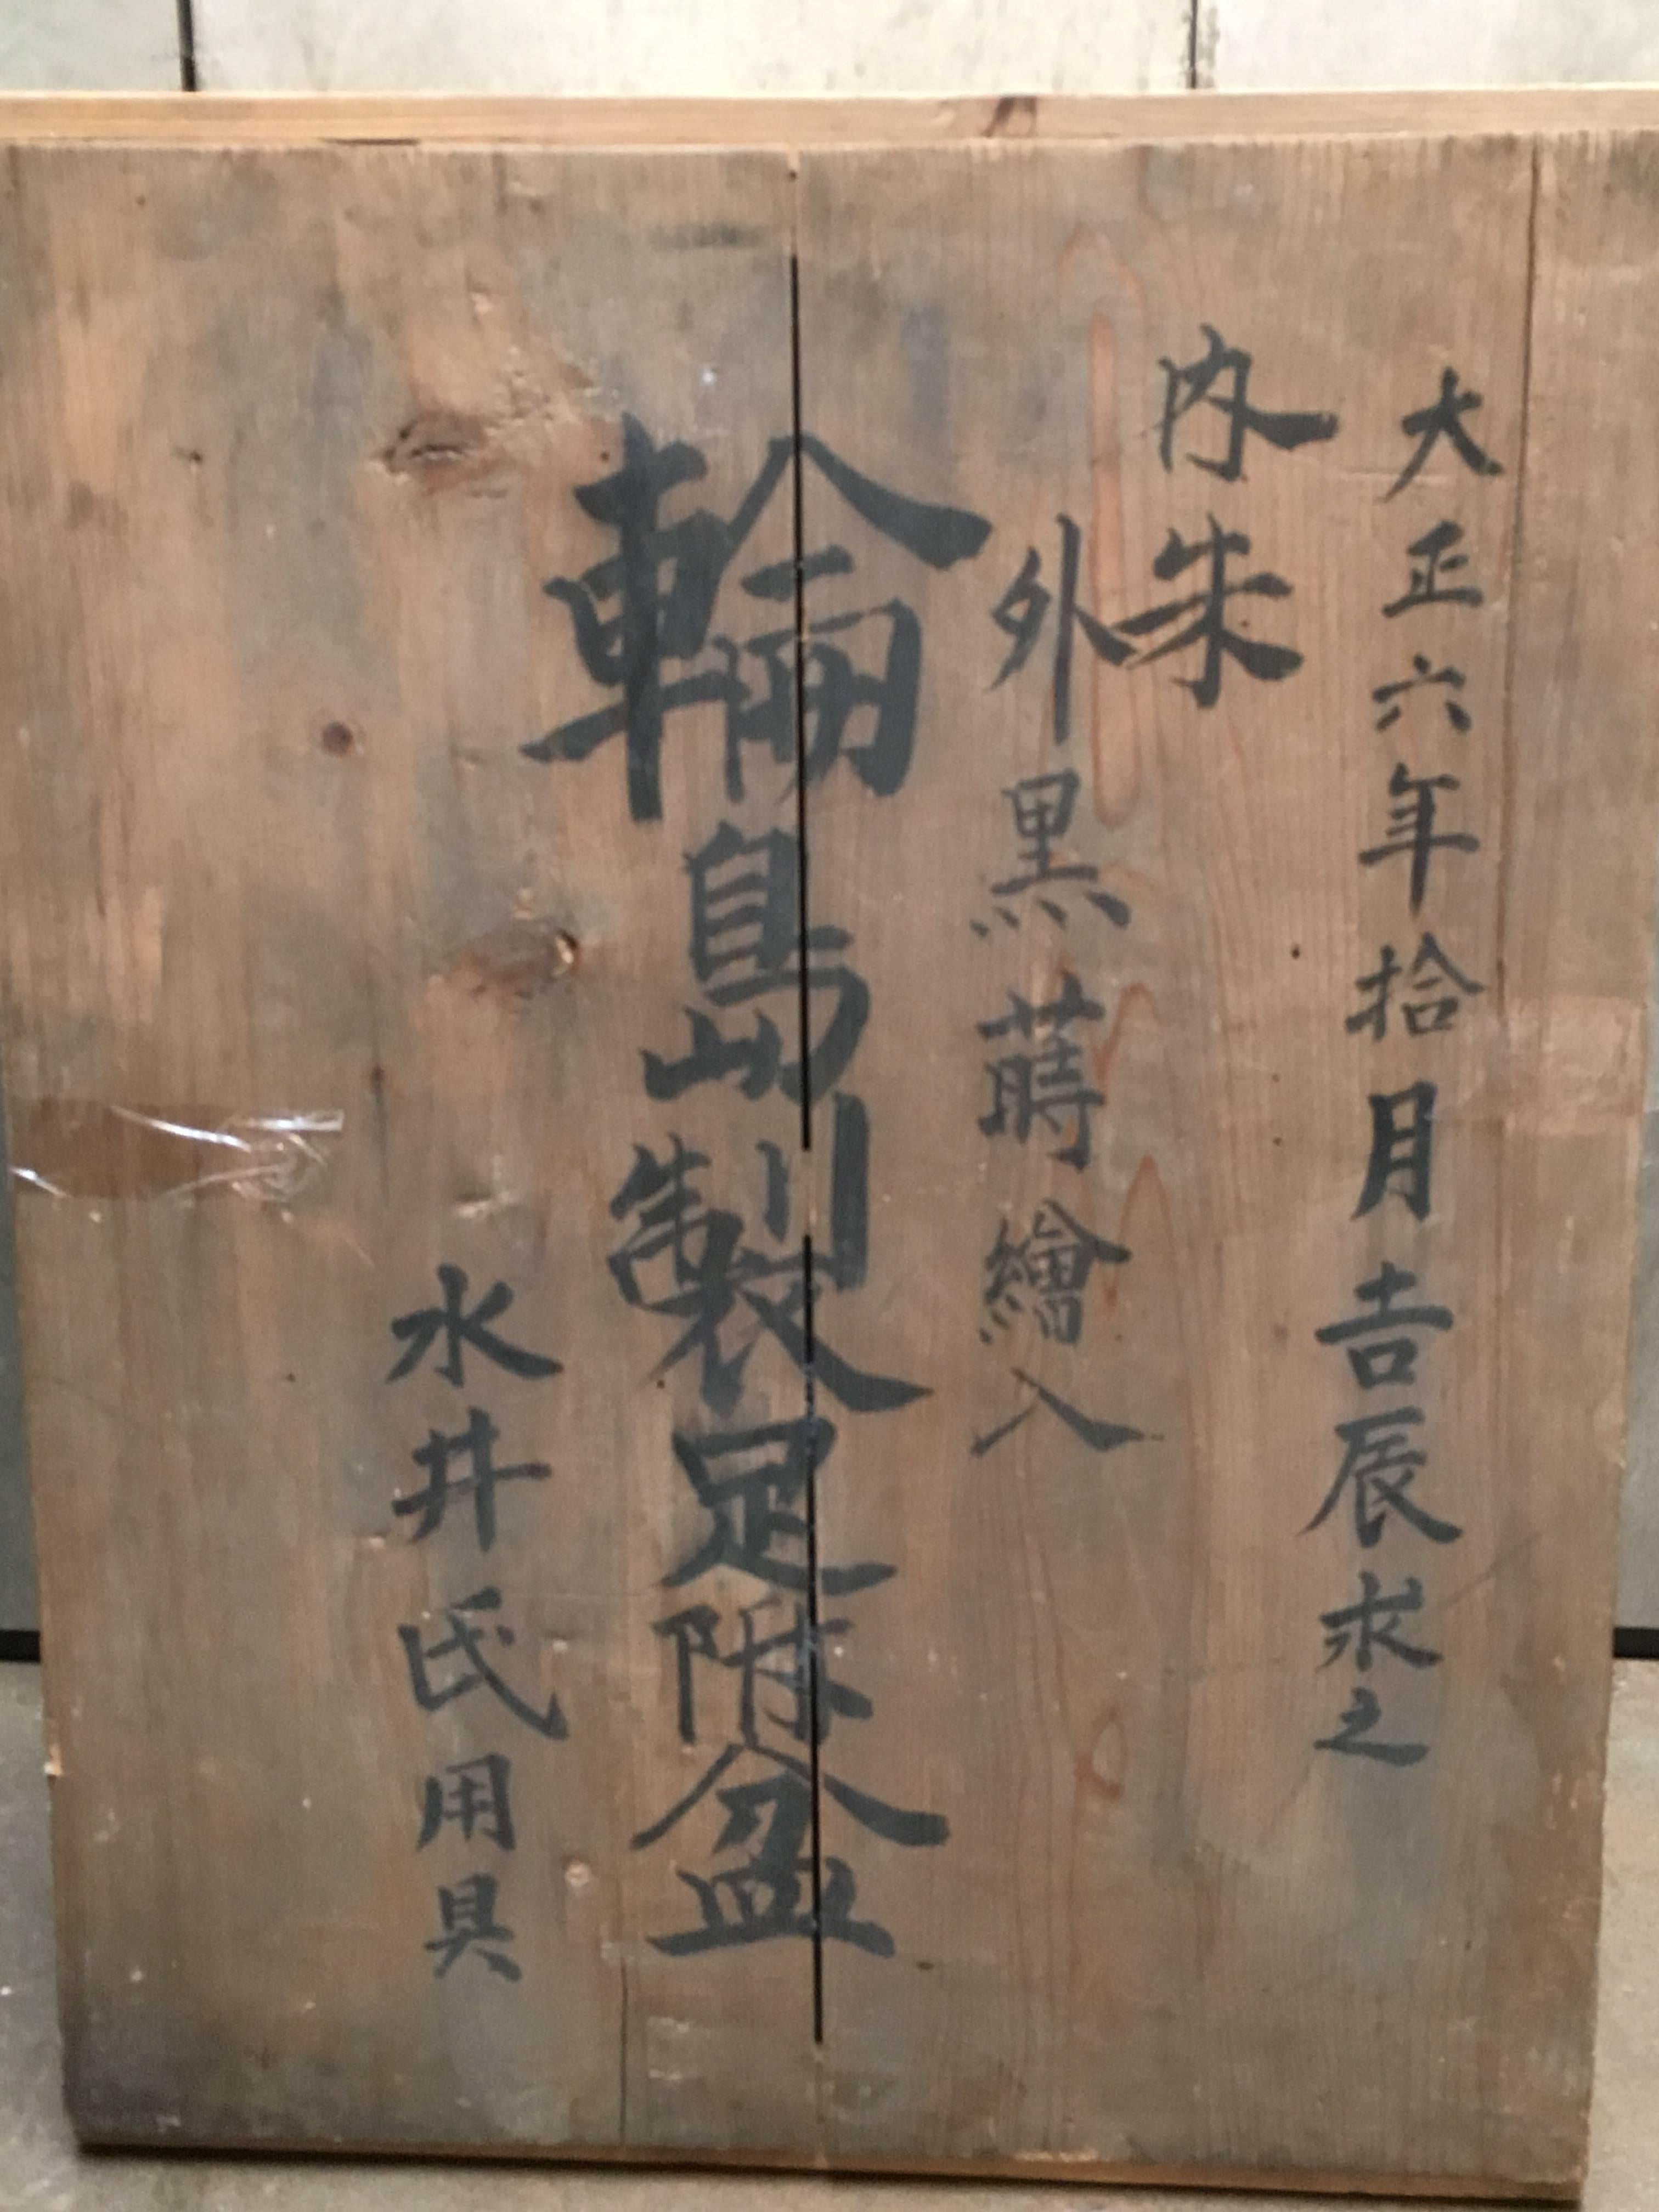 大正六年拾月吉辰求之
内朱
外黒蒔繪入
輪島製足附盆
水井氏用具